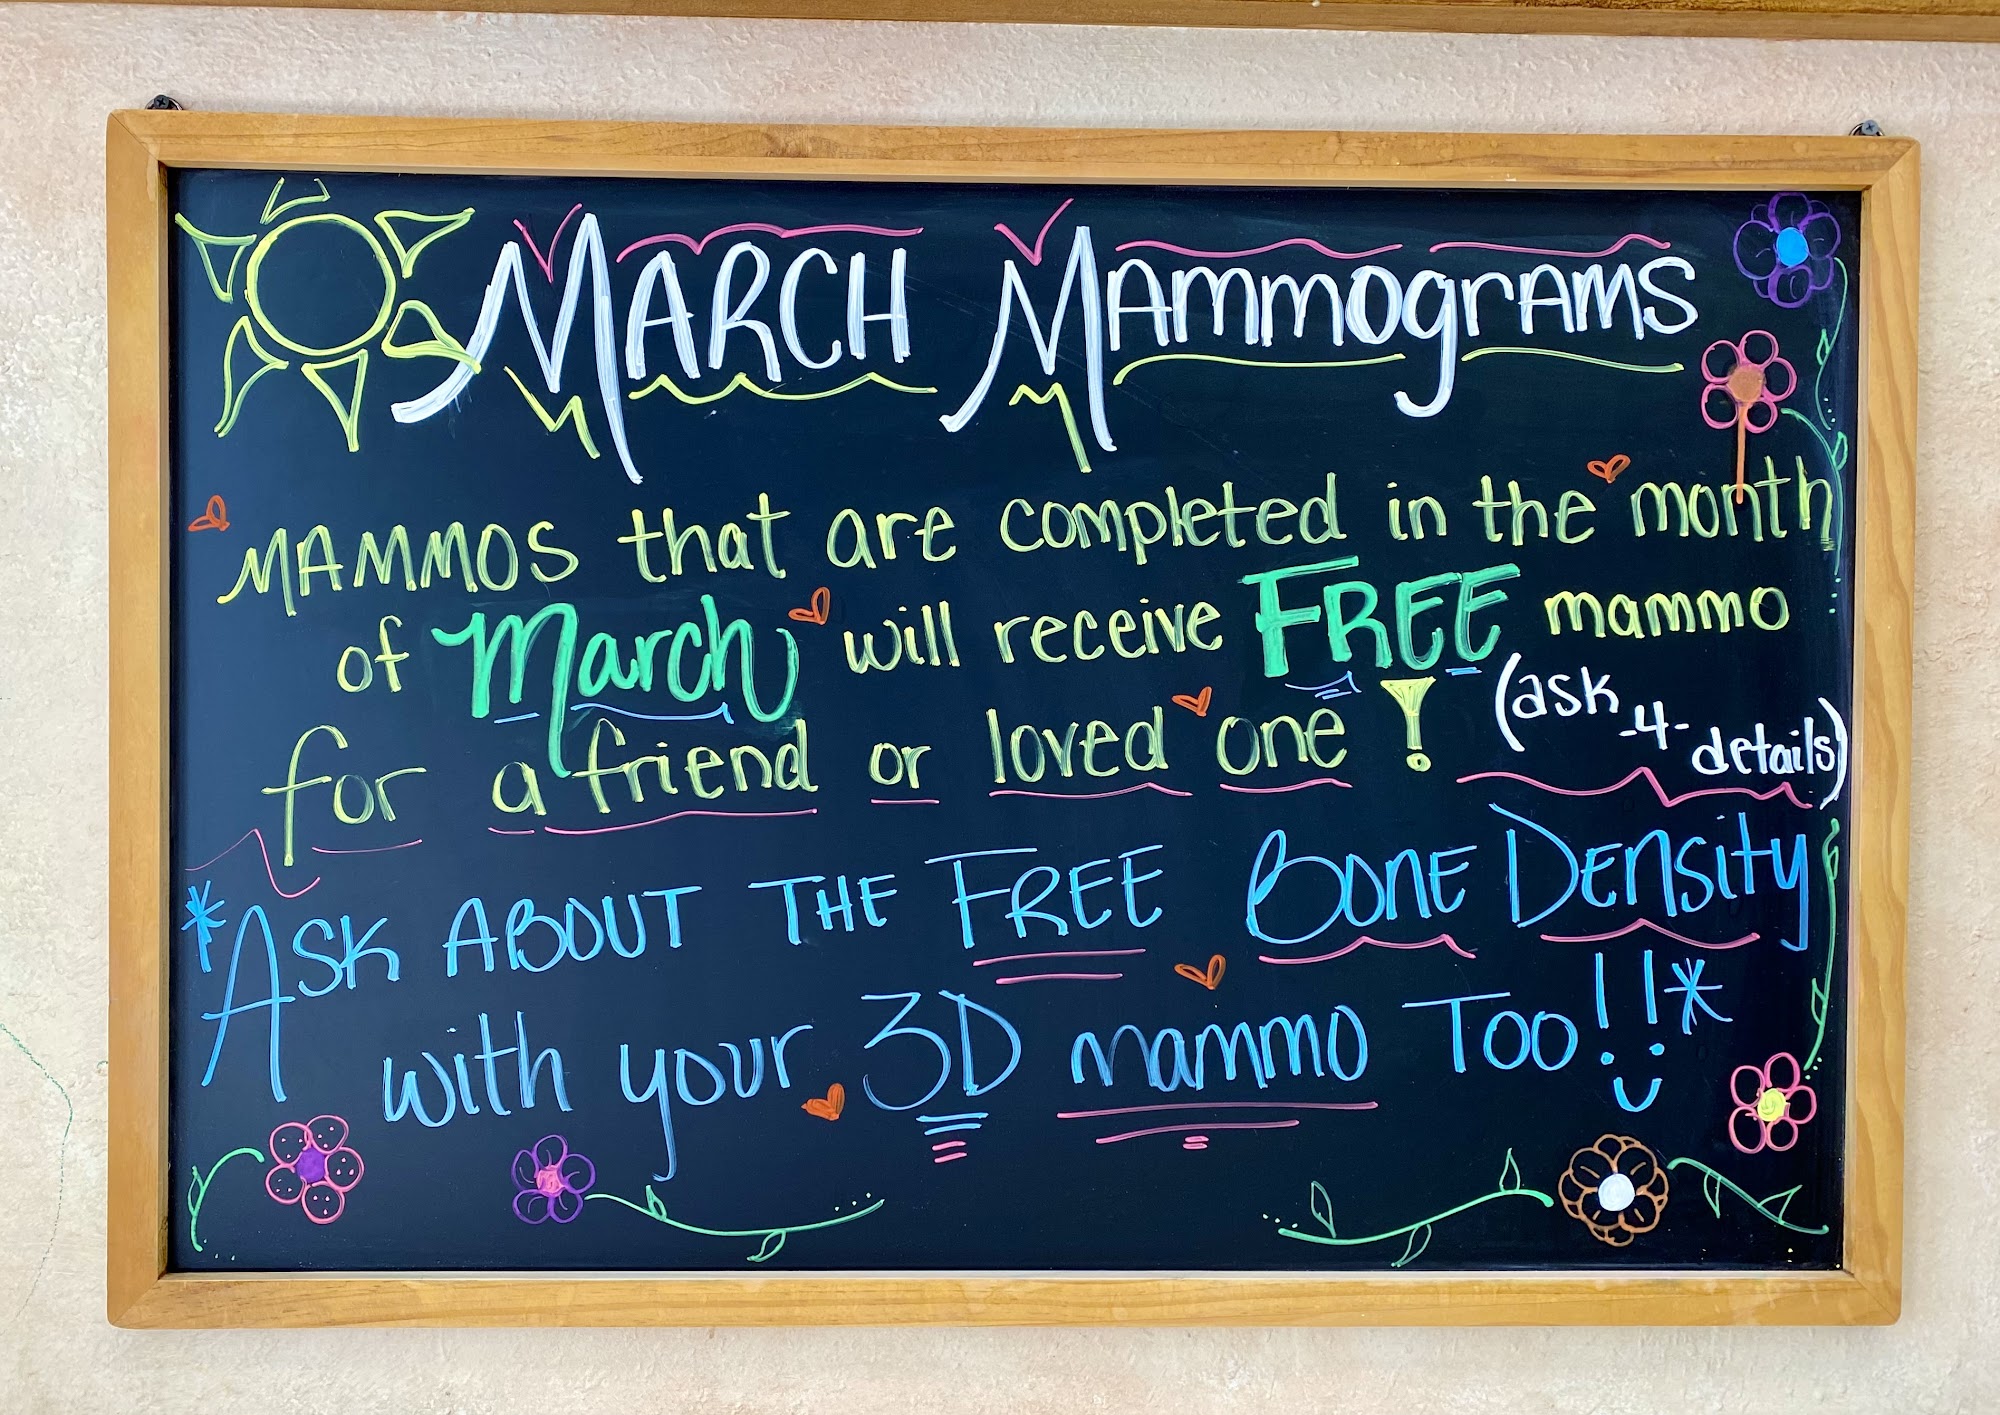 MARCH MAMMOgRAMS
MAMMOS that are completed in the month
of March will receive FREE mammo
for a friend or loved one! (ask -4- details)
*ASK ABOUT THE FREE BONE DENSITY
with your 3D mammo TOO!!*